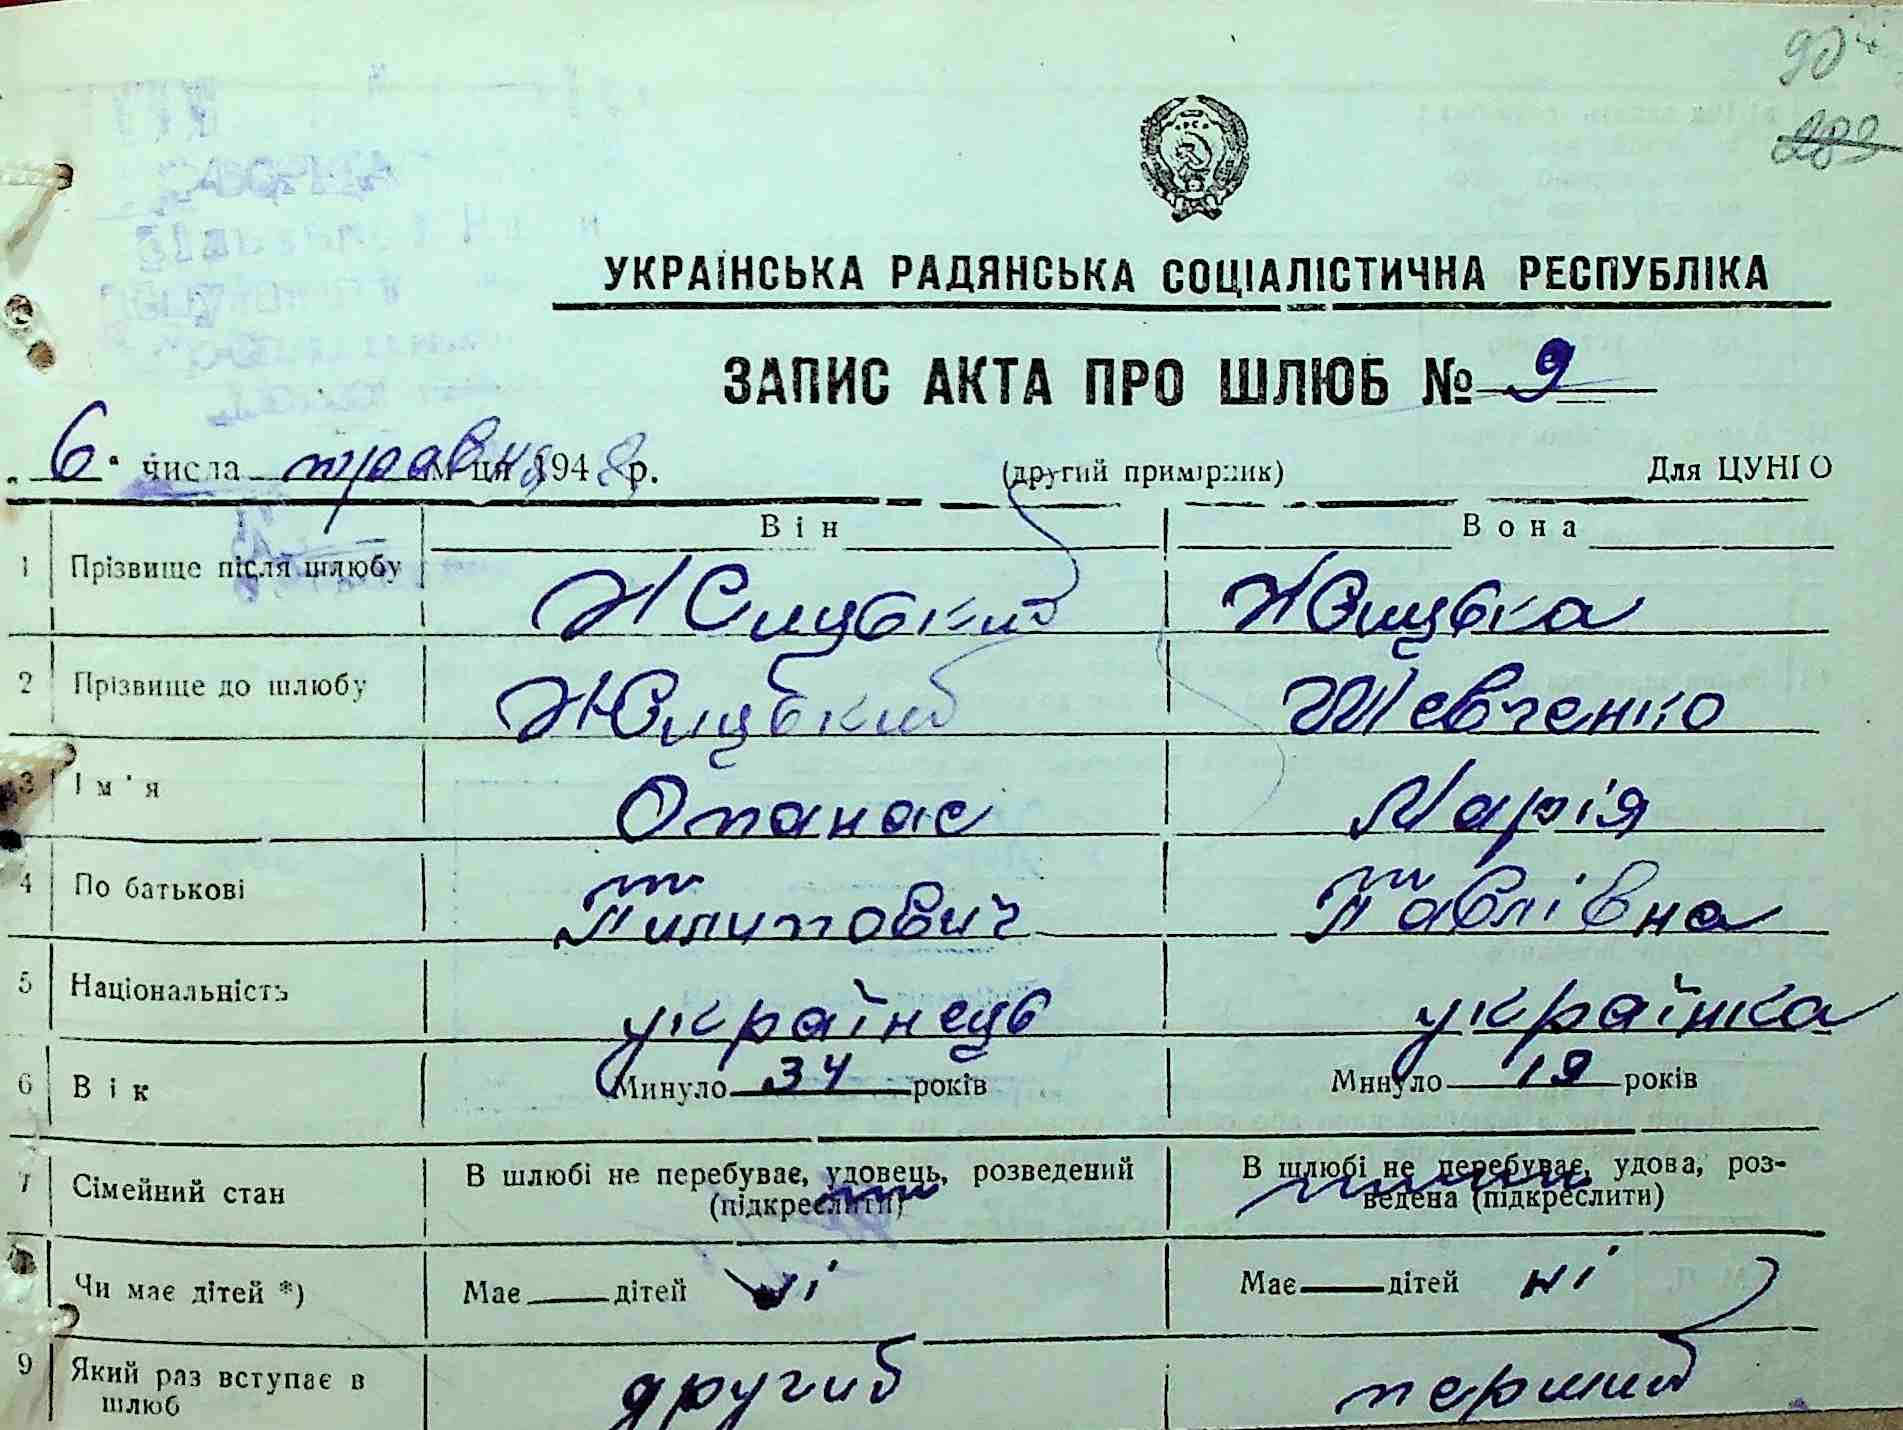 904
289
УКРАЇНСЬКА РАДЯНСЬКА СОЦІАЛІСТИЧНА РЕСПУБЛІКА
ЗАПИС АКТА ПРО ШЛЮБ № 9
"6" числа травня м-ця 1948 р. (другий примірник) Для ЦУНГО
Він Вона
1 Прізвище після шлюбу Жилуцький Жилуцька
2 Прізвище до шлюбу Жилуцький Шевченко
3 Ім'я Опанас Марія
4 По батькові Пилипович Павлівна
5 Національність українець українка
6 Вік Минуло 34 років Минуло 19 років
7 Сімейний стан В шлюбі не перебуває, удовець, розведений (підкреслити) В шлюбі не перебуває, удова, роз-
ведена (підкреслити)
Чи має дітей *) Має дітей ні Має дітей ні
9 Який раз вступає в
шлюб другий перший